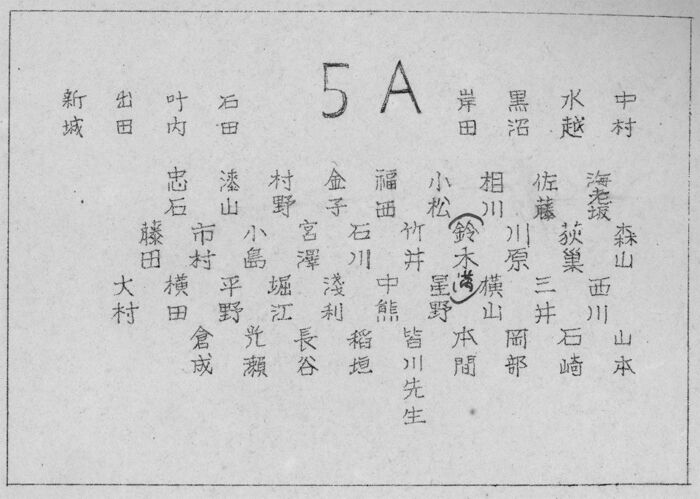 5A
中村
水越
黒沼
岸田
石田
叶内
出田
新城
海老坂
佐藤
相川
小松
福西
金子
村野
漆山
忠石
森山
荻巣
川原
鈴木満
竹井
石川
宮澤
小島
市村
藤田
西川
三井
横山
星野
中熊
淺利
堀江
平野
横田
大村
山本
石崎
岡部
本間
皆川先生
稻垣
長谷
光瀬
倉成